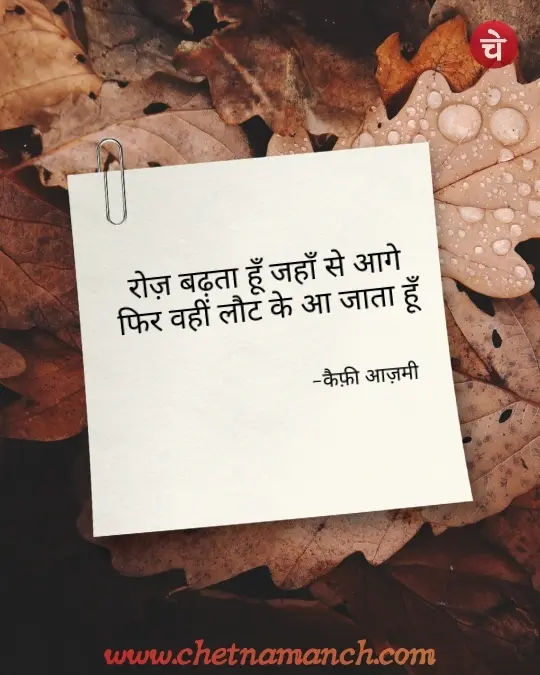 चे
रोज़ बढ़ता हूँ जहाँ से आगे
फिर वहीं लौट के आ जाता हूँ
-कैफ़ी आज़मी
www.chetnamanch.com